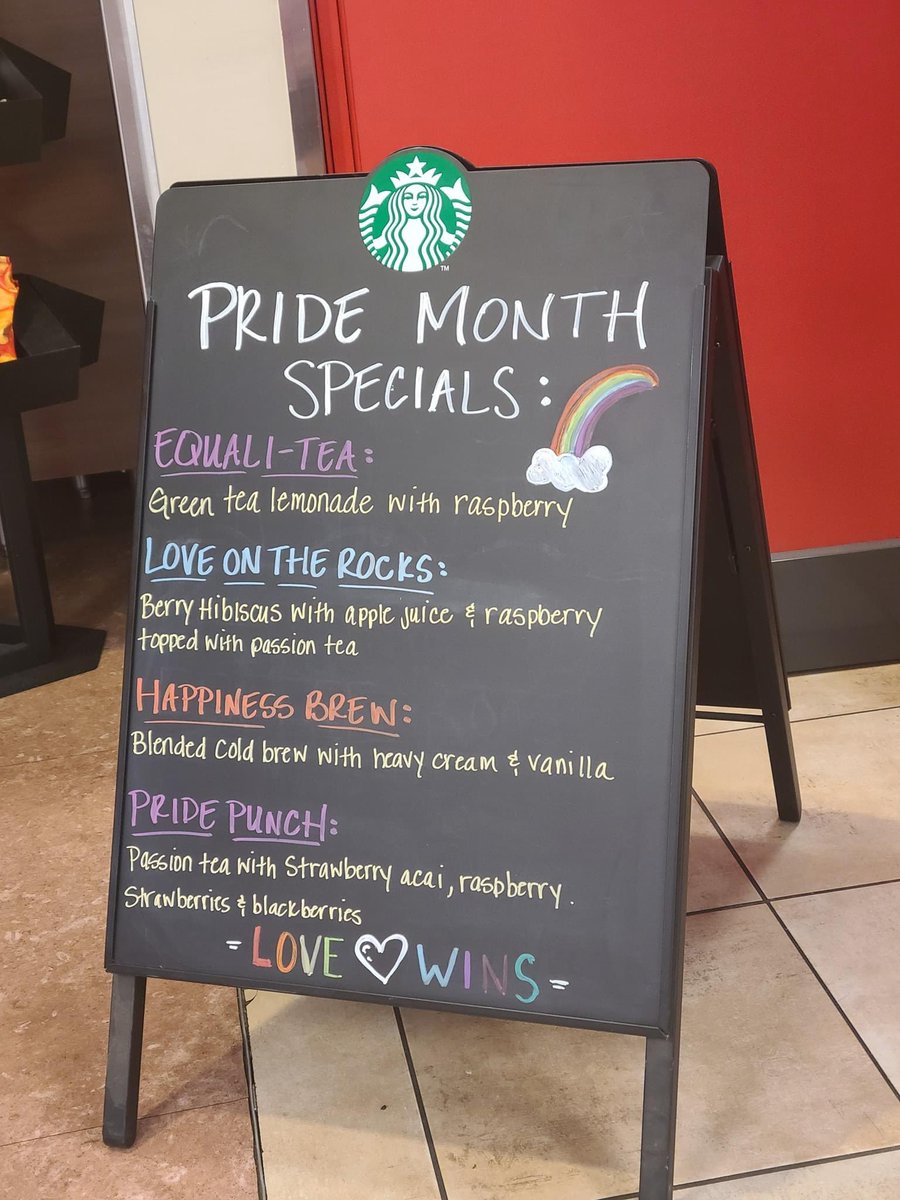 PRIDE MONTH
SPECIALS:
EQUALI-TEA:
Green tea lemonade with raspberry
LOVE ON THE ROCKS:
Berry Hibiscus with apple juice & raspberry
topped with passion tea
HAPPINESS BREW:
Blended cold brew with heavy cream & vanilla
PRIDE PUNCH:
Passion tea with Strawberry acai, raspberry.
Strawberries & blackberries
- LOVE ♡ WINS -
TM